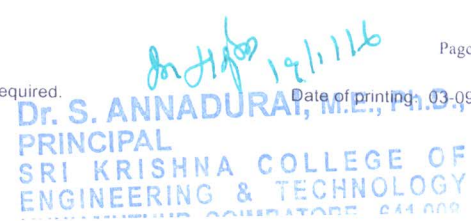 19/1/16
Page
equired.
Date of printing: 03-09
Dr. S. ANNADURAI, M.E., Ph.D.,
PRINCIPAL
SRI KRISHNA COLLEGE OF
ENGINEERING & TECHNOLOGY
COIMBATORE 641 008